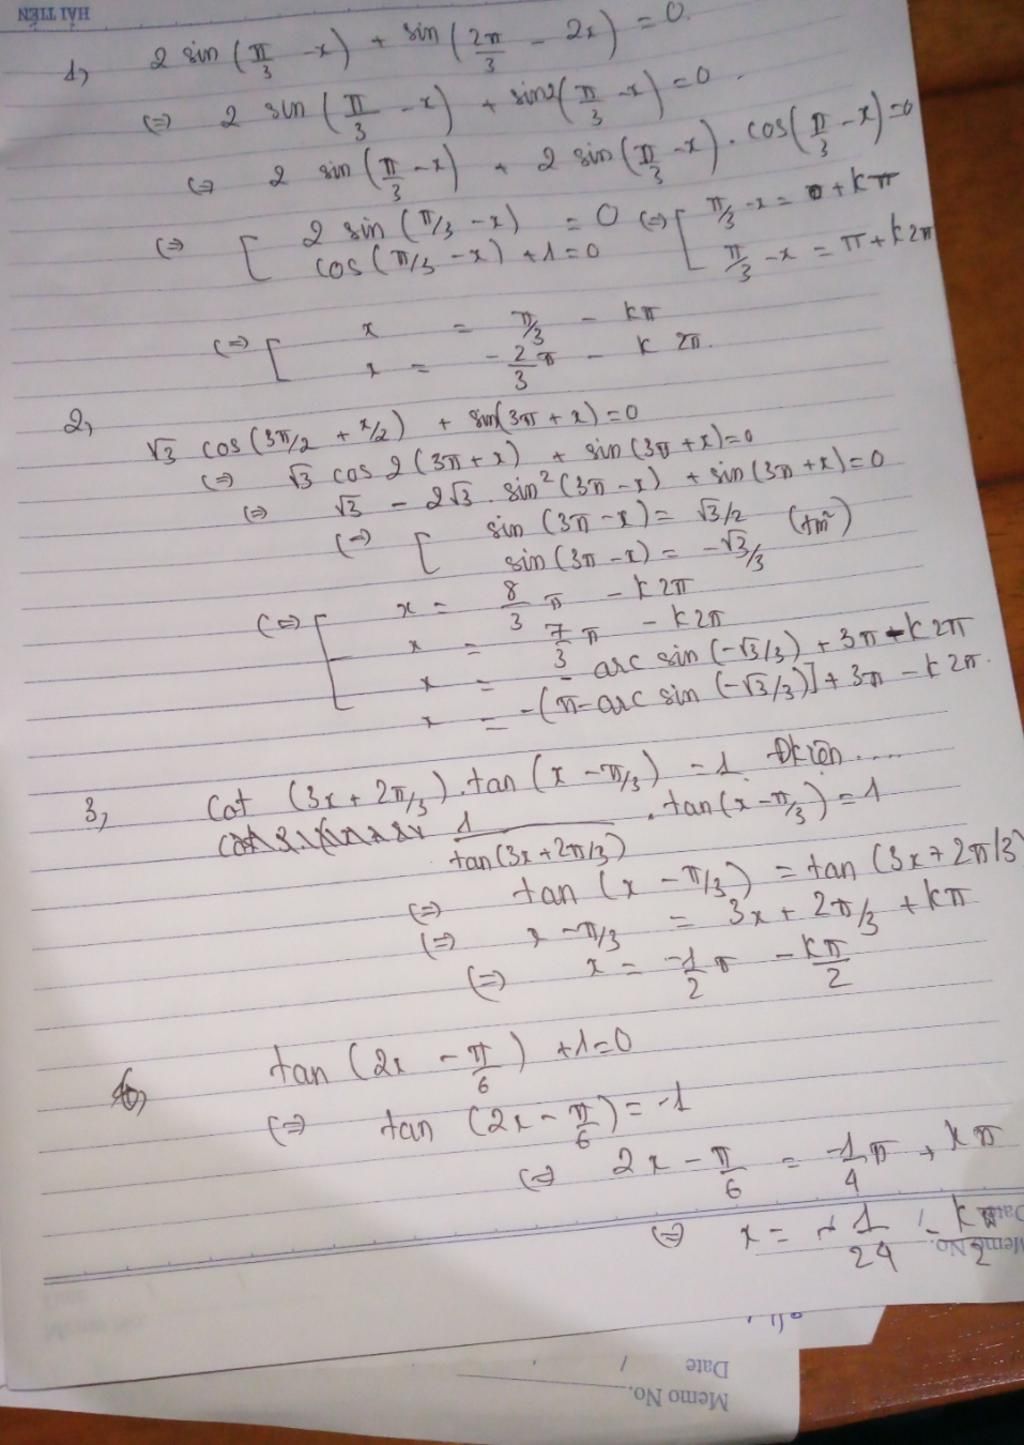 HẢI TIẾN
1, 2 sin (π/3 - x) + sin (2π/3 - 2x) = 0.
(=) 2 sin (π/3 - x) + sin2(π/3 - x) = 0.
(=) 2 sin (π/3 - x) + 2 sin (π/3 - x) . cos(π/3 - x) = 0
(=) [ 2 sin (π/3 - x) = 0 (=) [ π/3 - x = 0 + kπ
cos (π/3 - x) + 1 = 0 π/3 - x = π + k2π
(=) [ x = π/3 - kπ
x = -2/3 π - k 2π.
2, √3 cos (3π/2 + x/2) + sin(3π + x) = 0
(=) √3 cos 2 (3π + x) + sin (3π + x) = 0
(=) √3 - 2√3 . sin² (3π - x) + sin (3π + x) = 0
(=) [ sin (3π - x) = √3/2 (tm²)
sin (3π - x) = -√3/3
(=) [ x = 8/3 π - k2π
x = 7/3 π - k2π
x = - arc sin (-√3/3) + 3π - k2π
x = -(π - arc sin (-√3/3)] + 3π - k2π.
3, Cot (3x + 2π/3) . tan (x - π/3) = 1. Đkiện .....
1/tan(3x + 2π/3) . tan (x - π/3) = 1
(=) tan (x - π/3) = tan (3x + 2π/3)
(=) x - π/3 = 3x + 2π/3 + kπ
(=) x = -1/2 π - kπ/2
tan (2x - π/6) + 1 = 0
(=) tan (2x - π/6) = -1
(=) 2x - π/6 = -1/4 π + kπ
(=) x = - 1/24 - kπ/2
Date
Memo No.
Date / /
Memo No.